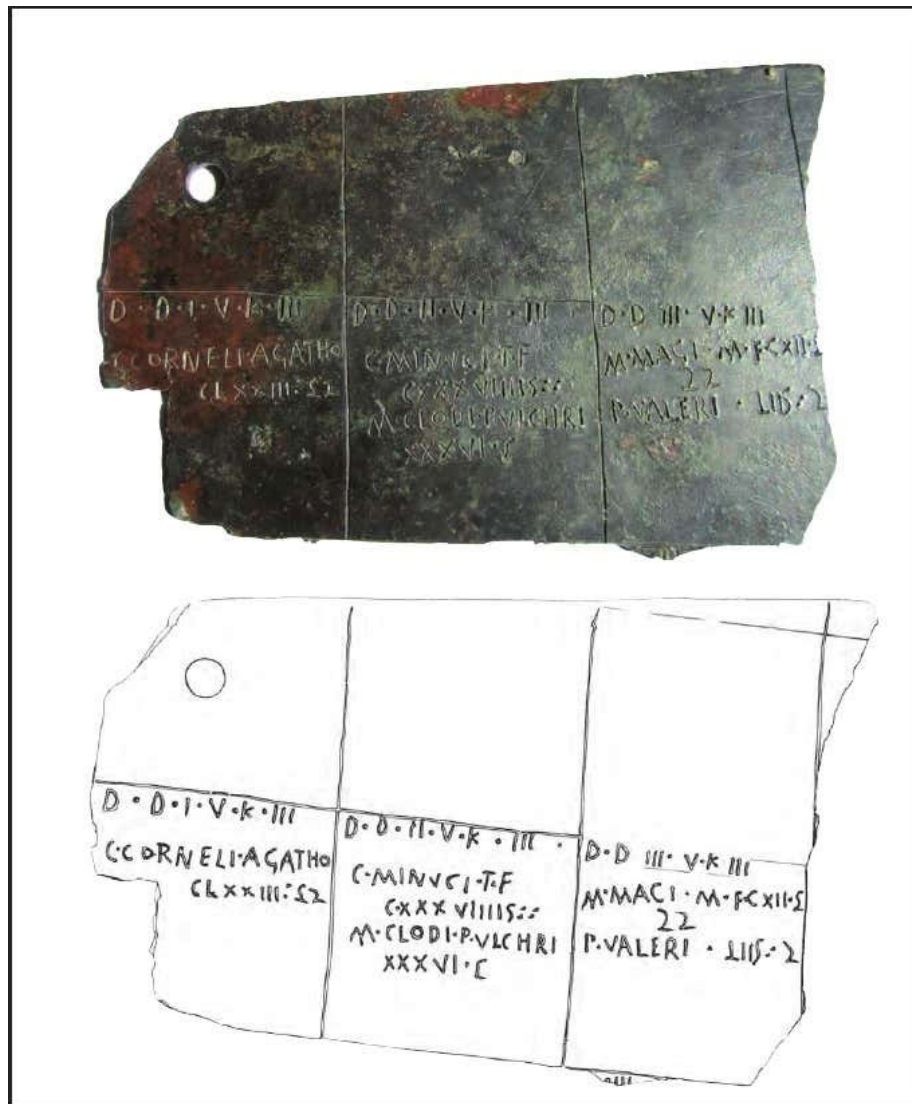 D · D · I · V · K · III
C · CORNELI · AGATHO
CLXXIII
D · D · II · V · K · III ·
C · MINUCI · T · F
CXXXVIIIIS::
M · CLODI · PULCHRI
XXXVI ·
D · D III · V · K III
M · MACI · M · F · CXII ·
22
P · VALERI · LIIS
D · D · I · V · K · III
C · CORNELI · AGATHO
CLXXIII:Σ2
D · D · II · V · K · III ·
C · MINVCI · T · F
C · XXXVIIIIS::
M · CLODI · PVLCHRI
XXXVI · Ↄ
D · D III · V · K III
M · MACI · M · F · CXII · Σ
22
P · VALERI · LIIS:· 2